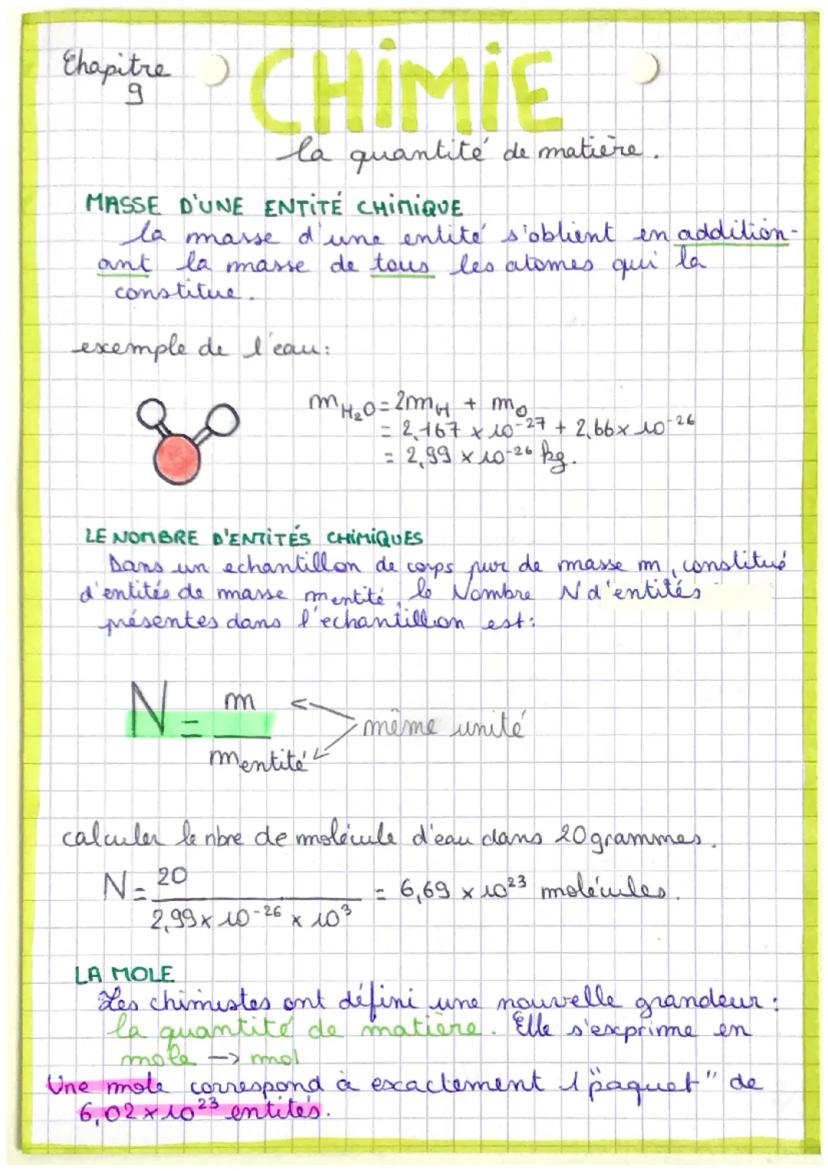 Chapitre
9
CHiMiE
la quantité de matière.
MASSE D'UNE ENTiTÉ CHiMiQUE
la masse d'une entité s'obtient en addition-
ant la masse de tous les atomes qui la
constitue.
exemple de l'eau:
m H₂O = 2mH + mO
= 2,167 × 10⁻²⁷ + 2,66 × 10⁻²⁶
= 2,99 × 10⁻²⁶ kg.
LE NOMBRE D'ENTiTÉS CHiMiQUES
Dans un echantillon de corps pur de masse m, constitué
d'entités de masse mentité, le Nombre N d'entités
présentes dans l'echantillion est:
N = m / mentité
même unité
calculer le nbre de molécule d'eau dans 20 grammes.
N = 20 / 2,99 × 10⁻²⁶ × 10³ = 6,69 × 10²³ molécules.
LA MOLE
Les chimistes ont défini une nouvelle grandeur:
la quantité de matière. Elle s'exprime en
mole -> mol
Une mole correspond à exactement 1 "paquet" de
6,02 × 10²³ entités.